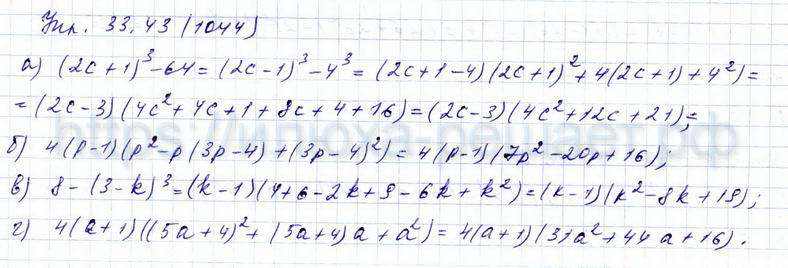 Упр. 33.43 (1044)
а) (2c+1)³-64 = (2c-1)³-4³ = (2c+1-4)(2c+1)²+4(2c+1)+4²)=
=(2c-3)(4c²+4c+1+8c+4+16)=(2c-3)(4c²+12c+21);
б) 4(p-1)(p²-p(3p-4)+(3p-4)²)=4(p-1)(7p²-20p+16);
в) 8-(3-k)³=(k-1)(4+6-2k+9-6k+k²)=(k-1)(k²-8k+19);
г) 4(a+1)((5a+4)²+(5a+4)a+a²)=4(a+1)(31a²+44a+16).